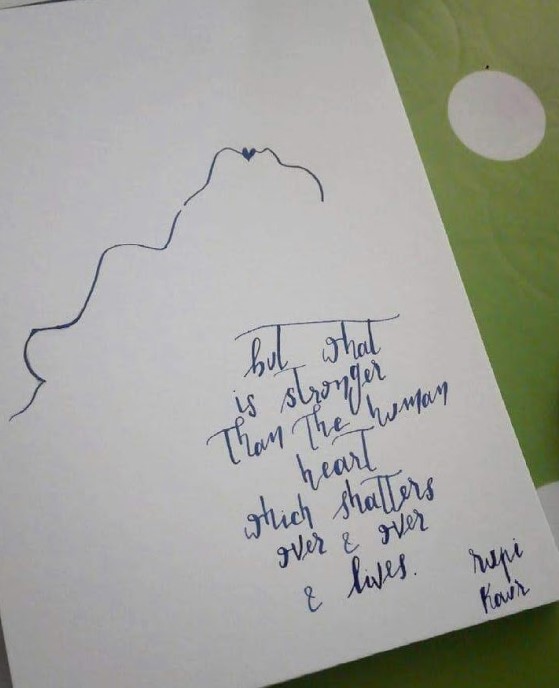 but what
is stronger
than the human
heart
which shatters
over & over
& lives.
rupi
Kaur